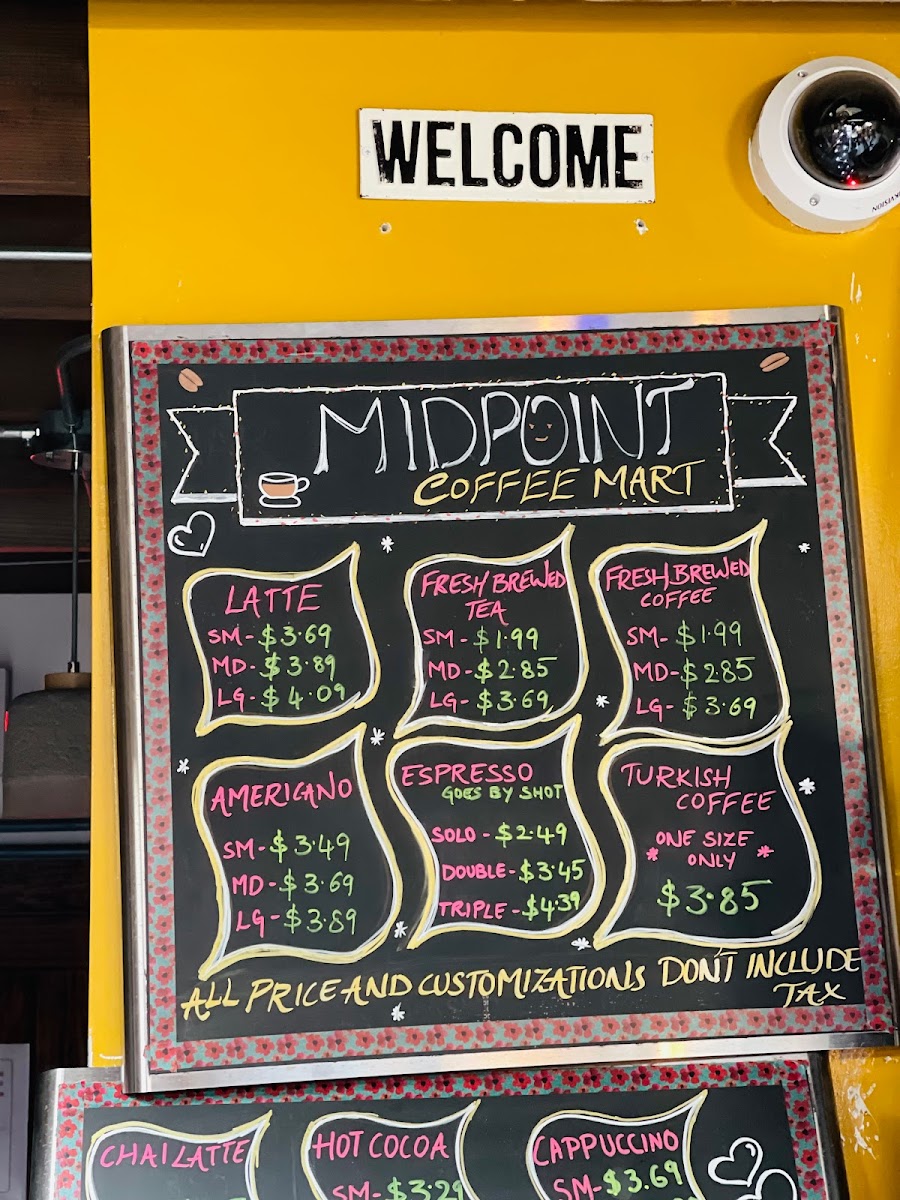 WELCOME
MIDPOINT
COFFEE MART
LATTE
SM-$3.69
MD-$3.89
LG-$4.09
FRESH BREWED
TEA
SM-$1.99
MD-$2.85
LG-$3.69
FRESH BREWED
COFFEE
SM-$1.99
MD-$2.85
LG-$3.69
AMERICANO
SM-$3.49
MD-$3.69
LG-$3.89
ESPRESSO
GOES BY SHOT
SOLO-$2.49
DOUBLE-$3.45
TRIPLE-$4.39
TURKISH
COFFEE
* ONE SIZE
ONLY *
$3.85
ALL PRICE AND CUSTOMIZATIONS DON'T INCLUDE
TAX
CHAI LATTE
HOT COCOA
SM-$3.29
CAPPUCCINO
SM-$3.69